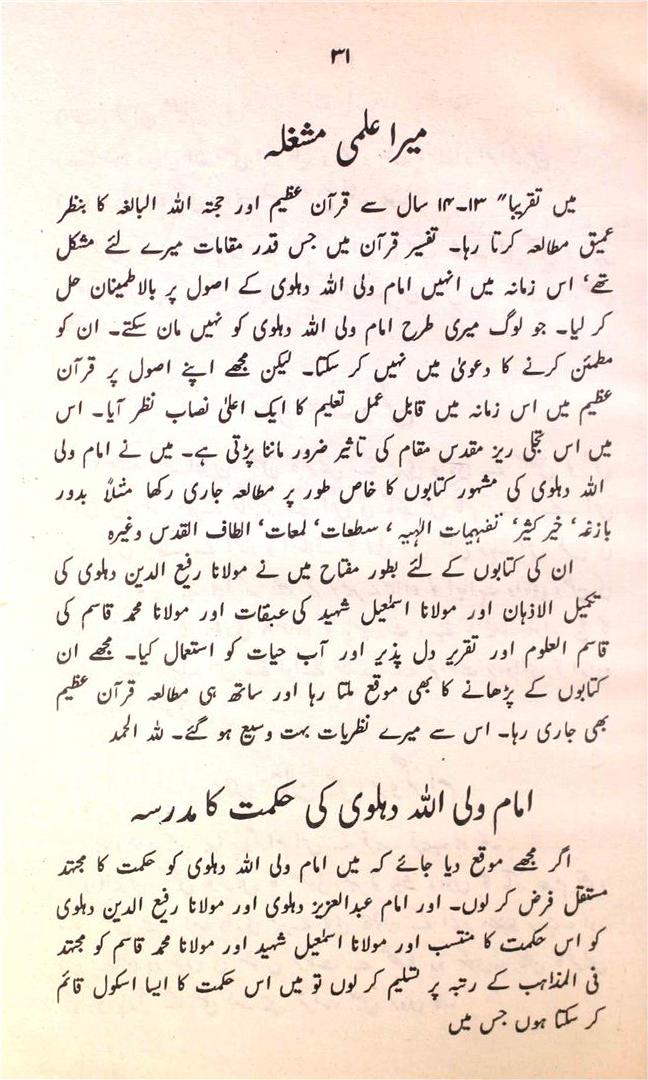 ۳۱
میرا علمی مشغلہ
میں تقریبا" ۱۳۔۱۴ سال سے قرآن عظیم اور حجتہ اللہ البالغہ کا بنظر
عمیق مطالعہ کرتا رہا۔ تفسیر قرآن میں جس قدر مقامات میرے لئے مشکل
تھے' اس زمانہ میں انہیں امام ولی اللہ دہلوی کے اصول پر بالاطمینان حل
کر لیا۔ جو لوگ میری طرح امام ولی اللہ دہلوی کو نہیں مان سکتے۔ ان کو
مطمئن کرنے کا دعویٰ میں نہیں کر سکتا۔ لیکن مجھے اپنے اصول پر قرآن
عظیم میں اس زمانہ میں قابل عمل تعلیم کا ایک اعلیٰ نصاب نظر آیا۔ اس
میں اس تجلی ریز مقدس مقام کی تاثیر ضرور ماننا پڑتی ہے۔ میں نے امام ولی
اللہ دہلوی کی مشہور کتابوں کا خاص طور پر مطالعہ جاری رکھا مثلاً بدور
بازغہ' خیر کثیر' تفہیمات الہٰیہ ، سطعات' لمعات' الطاف القدس وغیرہ
ان کی کتابوں کے لئے بطور مفتاح میں نے مولانا رفیع الدین دہلوی کی
تکمیل الاذہان اور مولانا اسمٰعیل شہید کی عبقات اور مولانا محمد قاسم کی
قاسم العلوم اور تقریر دل پذیر اور آب حیات کو استعمال کیا۔ مجھے ان
کتابوں کے پڑھانے کا بھی موقع ملتا رہا اور ساتھ ہی مطالعہ قرآن عظیم
بھی جاری رہا۔ اس سے میرے نظریات بہت وسیع ہو گئے۔ للہ الحمد
امام ولی اللہ دہلوی کی حکمت کا مدرسہ
اگر مجھے موقع دیا جائے کہ میں امام ولی اللہ دہلوی کو حکمت کا مجتہد
مستقل فرض کر لوں۔ اور امام عبدالعزیز دہلوی اور مولانا رفیع الدین دہلوی
کو اس حکمت کا منتسب اور مولانا اسمٰعیل شہید اور مولانا محمد قاسم کو مجتہد
فی المذاہب کے رتبہ پر تسلیم کر لوں تو میں اس حکمت کا ایسا اسکول قائم
کر سکتا ہوں جس میں